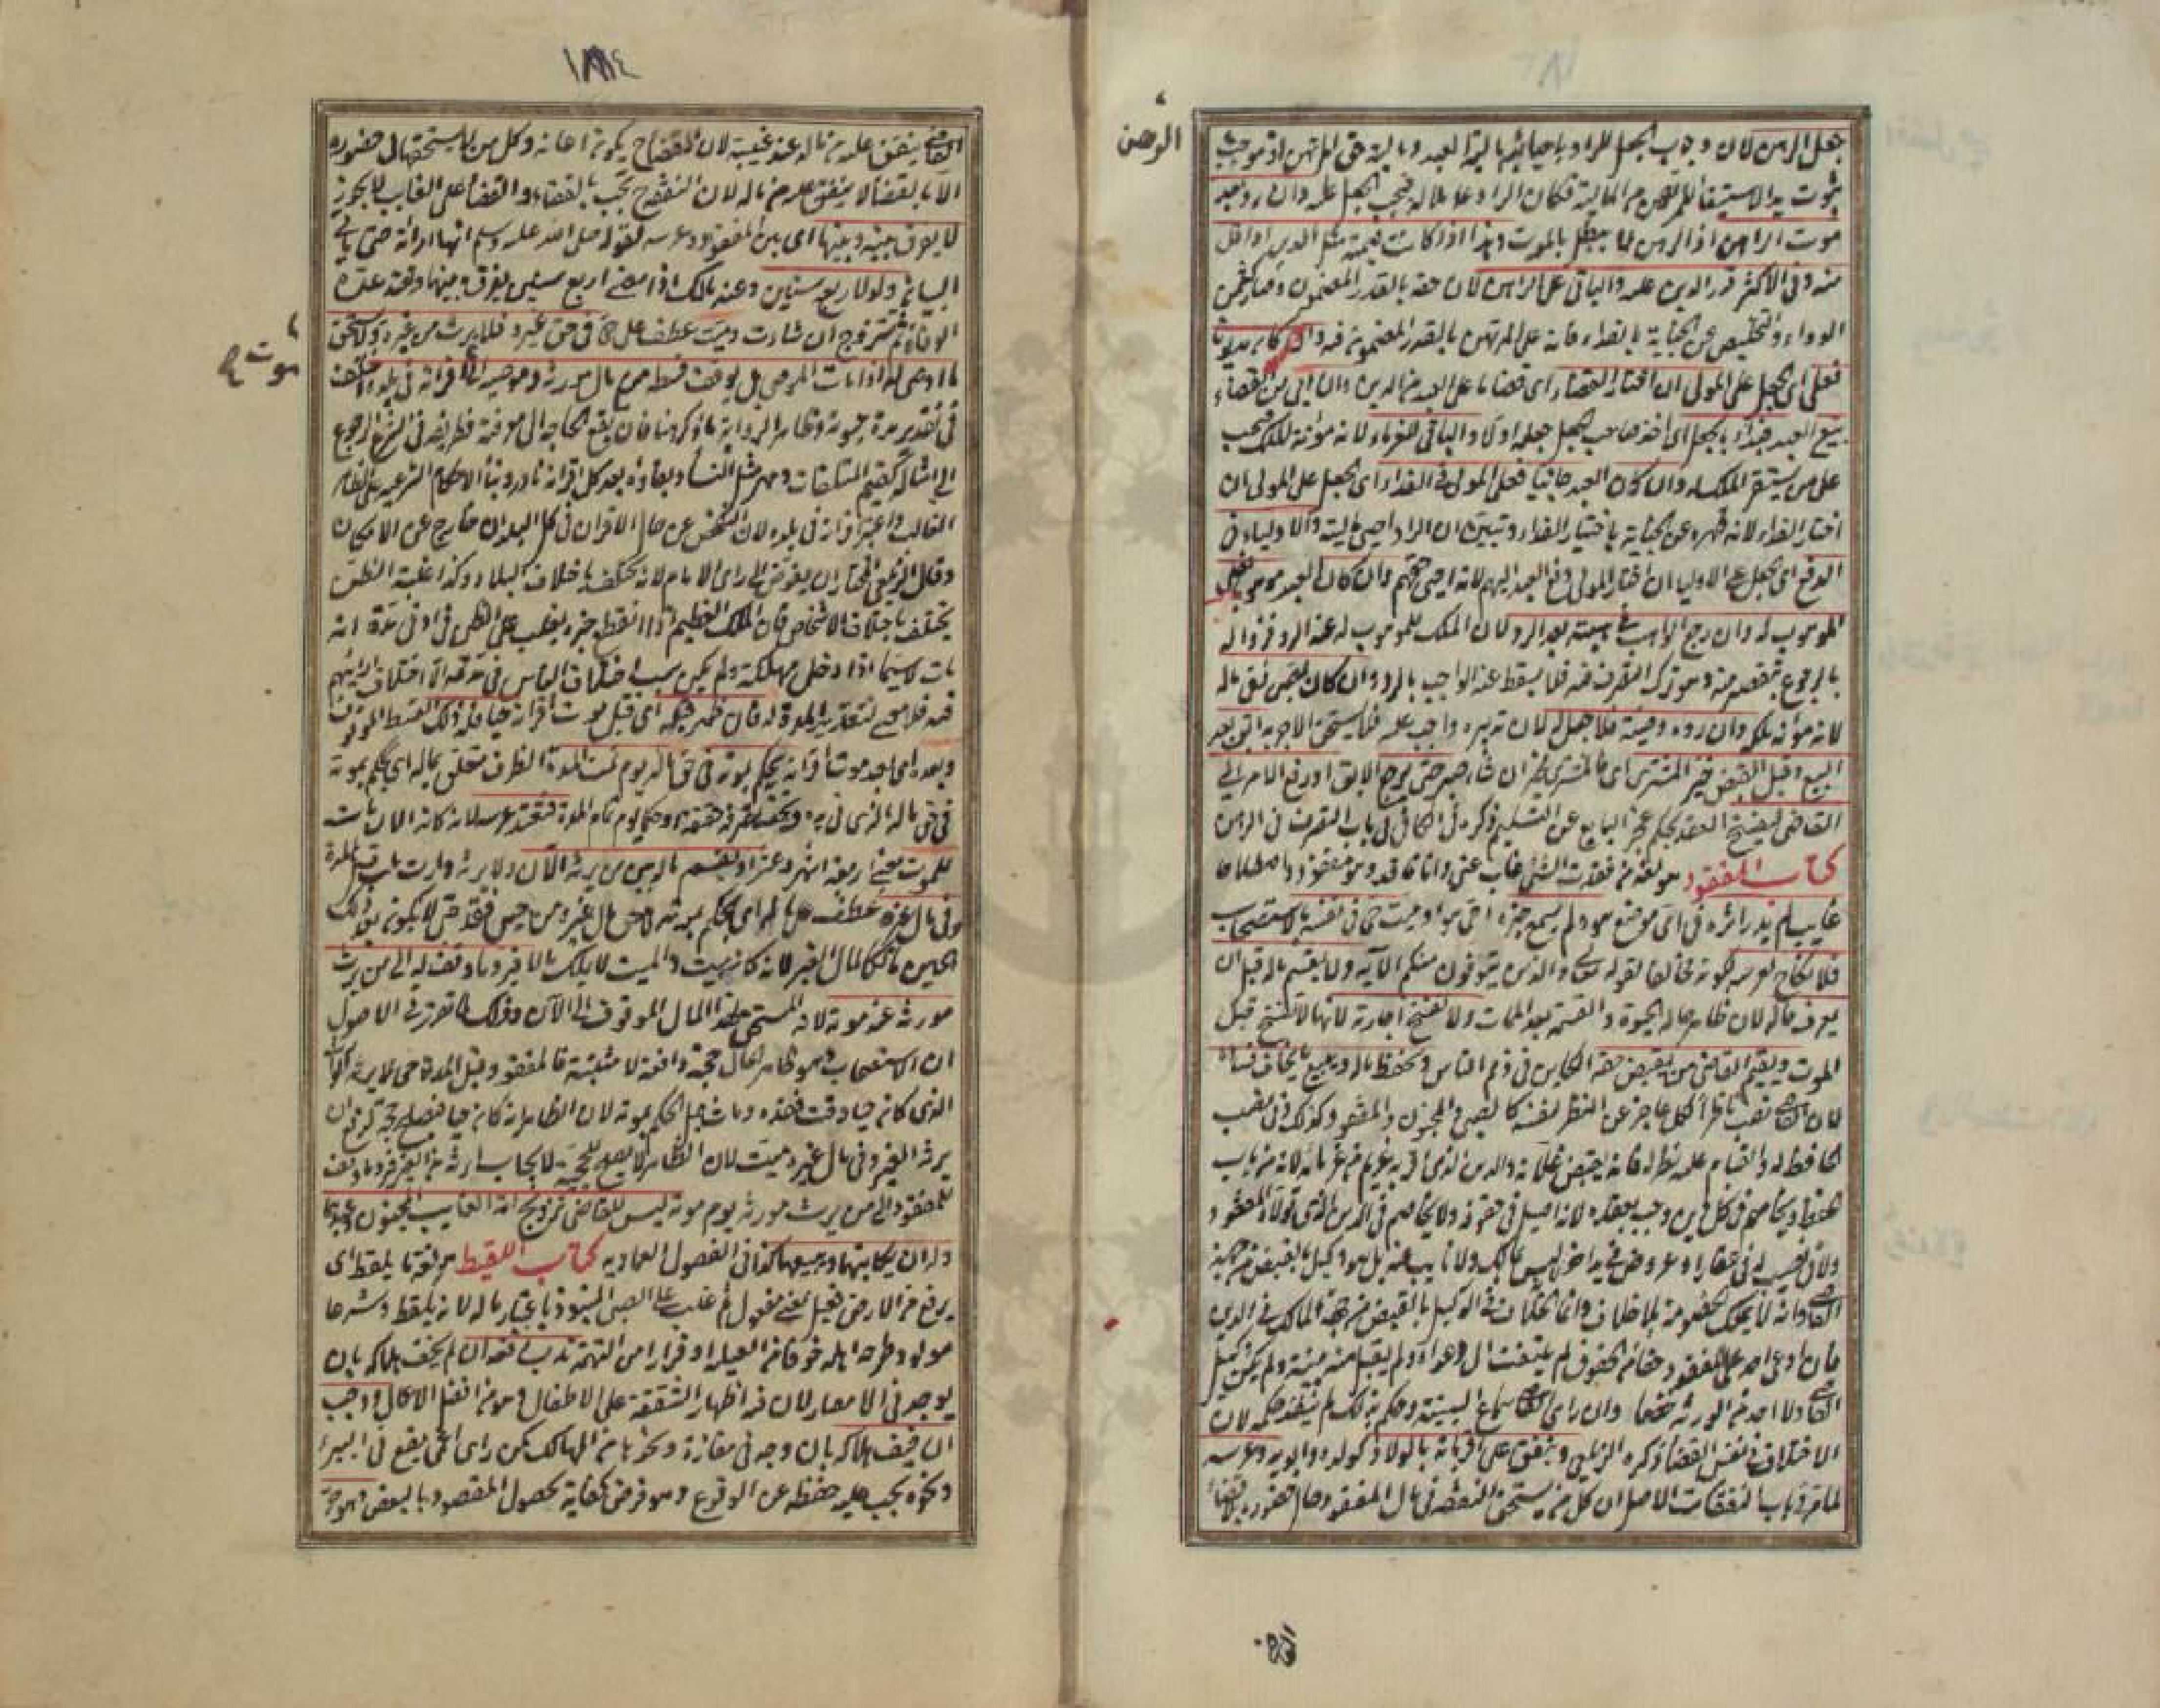 جعل الرهن لان وجوب الجعل للراد باحيائه مالية العبد ومالية حق المرتهن اذ موجبه
ثبوت يد الاستيفاء للمرتهن من المالية فكان الراد عاملا له فيجب الجعل عليه وان رده بعد
موت الراهن اذ الرهن لا يبطل بالموت وهذا اذا كانت قيمته مثل الدين او اقل
منه وفي الاكثر قدر الدين عليه والباقي على الراهن لان حقه بالقدر المضمون وصار كثمن
الدواء والتخليص عن الجناية بالفداء فانه على المرتهن بالقدر المضمون منه وان كان مديونا
فعلى اي الجعل على المولى ان اختار القضاء اي قضاء ما على العبد من الدين وان ابى من القضاء
بيع العبد فبدأ بالجعل اي اخذ صاحب الجعل جعله اولا والباقي للغرماء لانه مؤنة للملك فيجب
على من يستقر الملك له وان كان العبد جانيا فعلى المولى في الفداء اي الجعل على المولى ان
اختار الفداء لانه طهره عن الجناية باختيار الفداء وتبين ان الراد احيى ماليته والاولياء في
الدفع اي الجعل على الاولياء ان اختار المولى دفع العبد اليهم لانه احيى حقهم وان كان العبد موهوبا فعلى
الموهوب له وان رجع الواهب في هبته بعد الرد لان الملك للموهوب له عند الرد فزواله
بالرجوع بتقصير منه وهو ترك التصرف فيه فلا يسقط عنه الواجب بالرد وان كان لصبي ففي ماله
لانه مؤنة ملكه وان رده وصيه فلا جعل له لان تدبيره واجب عليه فلا يستحق الاجر به ابق بعد
البيع وقبل القبض خير المشتري اي فالمشتري يخير ان شاء صبر حتى يرجع الابق او رفع الامر الى
القاضي ليفسخ العقد بحكم عجز البايع عن التسليم ذكره في الكافي في باب التصرف في الرهن
كتاب المفقود هو لغة من فقدت الشئ غاب عني وانا فاقد وهو مفقود واصطلاحا
غايب لم يدر اثره في اي موضع هو ولم يسمع خبره احي هو او ميت حي في نفسه بالاستصحاب
فلا تنكح عرسه لكونه مخالفا لقوله تعالى والذين يتوفون منكم الآية ولا يقسم ماله قبل ان
يعرف حاله لان ظاهر حاله الحيوة والقسمة بعد الممات ولا تفسخ اجارته لانها لا تفسخ قبل
الموت ويقيم القاضي من يقبض حقه الكاين في ذمم الناس ويحفظ ماله ويبيع ما يخاف فساده
لان القاضي نصب ناظرا لكل عاجز عن النظر لنفسه كالصبي والمجنون والمفقود كذلك وفي نصب
الحافظ له والقيام عليه نظر له فانه يقبض غلاته والدين الذي اقر به غريم من غرمائه لانه من باب
الحفظ ويخاصم في كل دين وجب بعقده لانه اصيل في حقوقه ولا يخاصم في الدين الذي تولاه المفقود
ولا في نصيب له في عقار او عروض في يد اخر لانه ليس بمالك ولا نايب عنه بل هو وكيل بالقبض من جهة
القاضي وانه لا يملك الخصومة بلا خلاف وانما الخلاف في الوكيل بالقبض من جهة المالك في الدين
فان ادعى احد على المفقود حقا من الحقوق لم يلتفت الى دعواه ولم يقبل منه بينة ولم يكن وكيل
القاضي ولا احد من الورثة خصما وان راى القاضي سماع البينة وحكم بذلك لم ينفذ حكمه لان
الاختلاف في نفس القضاء ذكره الزيلعي وينفق على اقربائه بالولاد كولده وابويه وعرسه
لما مر في باب النفقات الاصل ان كل من يستحق النفقة في مال المفقود حال حضوره بلا قضاء
الرهن
القاضي ينفق عليه من ماله عند غيبته لان القضاء ح يكون اعانة وكل من لا يستحقها في حضوره
الا بالقضاء لا ينفق عليه من ماله لان النفقة ح تجب بالقضاء والقضاء على الغايب لا يجوز
لا يفرق بينه وبينها اي بين المفقود وعرسه لقوله صلى الله عليه وسلم انها امرأته حتى يأتي
البيان ولو لاربع سنين وعند مالك اذا مضى اربع سنين يفرق بينهما وتعتد عدة
الوفاة ثم تتزوج ان شاءت وميت عطف على حي في حق غيره فلا يرث من غيره ولا يستحق
ما اوصى له اذا مات الموصي بل يوقف قسطه من مال مورثه وموصيه الى موت اقرانه في بلده اختلف
في تقدير مدة حيوته وظاهر الرواية ما ذكرنا فان يقع الحاجة الى معرفته فطريقه في الشرع الرجوع
الى امثاله كقيم المتلفات ومهر مثل النساء وبقاؤه بعد كل اقرانه نادر وبناء الاحكام الشرعية على الظاهر
الغالب واعتبر اقرانه في بلده لان التفحص عن حال الاقران في كل البلدان خارج عن الامكان
وقال الزيلعي المختار ان يفوض الى راى الامام لانه يختلف باختلاف البلاد وكذا غلبة الظن
يختلف باختلاف الاشخاص فان الملك العظيم اذا انقطع خبره يغلب على الظن في ادنى مدة انه
مات لاسيما اذا دخل مهلكة ولم يكن سبب اختلاف الناس في مدته الا اختلاف ارائهم
فيه فلا معنى لتقدير المدة له فان ظهر حيا قبله اي قبل موت اقرانه حيا فله ذلك القسط الموقوف
وبعده اي بعد موت اقرانه يحكم بموته في حق ماله يوم تمت المدة الظرف متعلق بماله اي يحكم بموته
موت
للموت مضى اربعة اشهر وعشر او يقسم ماله بين من يرثه الآن ولا يرثه وارث مات قبل المدة
وفي مال غيره عطف على ماله اي يحكم بموته في حق مال غيره من حين فقد حتى لا يكون بذلك
الحين مالكا لمال الغير لانه كان ميت والميت لا يملك مال الغير وما وقف له الى من يرث
مورثه عند موته لانه المستحق لهذا المال الموقوف الى الآن وذلك لما تقرر في الاصول
ان الاستصحاب وهو ظاهر الحال حجة دافعة لا مثبتة فالمفقود قبل المدة حي لا يرثه الوارث
الذي كان حيا وقت فقده ومات قبل الحكم بموته لان الظاهر انه كان حيا فيصلح حجة لدفع ان
يرثه الغير وفي مال غيره ميت لان الظاهر لا يصلح حجة لايجاب ارثه من الغير فيرد ما وقف
للمفقود الى من يرث مورثه يوم موته ليس للقاضي تزويج امة الغايب والمجنون وعبدهما
وله ان يكاتبهما ويبيعهما كذا في الفصول العمادية كتاب اللقيط هو لغة ما يلقط اي
يرفع من الارض فعيل بمعنى مفعول ثم غلب على الصبي المنبوذ باعتبار ماله لانه يلقط وشرعا
مولود طرحه اهله خوفا من العيلة او فرارا من التهمة ندب رفعه ان لم يخف هلاكه بان
يوجد في الامصار لان فيه اظهار الشفقة على الاطفال وهو من افضل الاعمال ووجب
ان خيف هلاكه بان وجد في مفازة ونحوها من المهالك كمن راى اعمى يقع في البير
ونحوه يجب عليه حفظه عن الوقوع وهو فرض كفاية لحصول المقصود بالبعض وهو حر